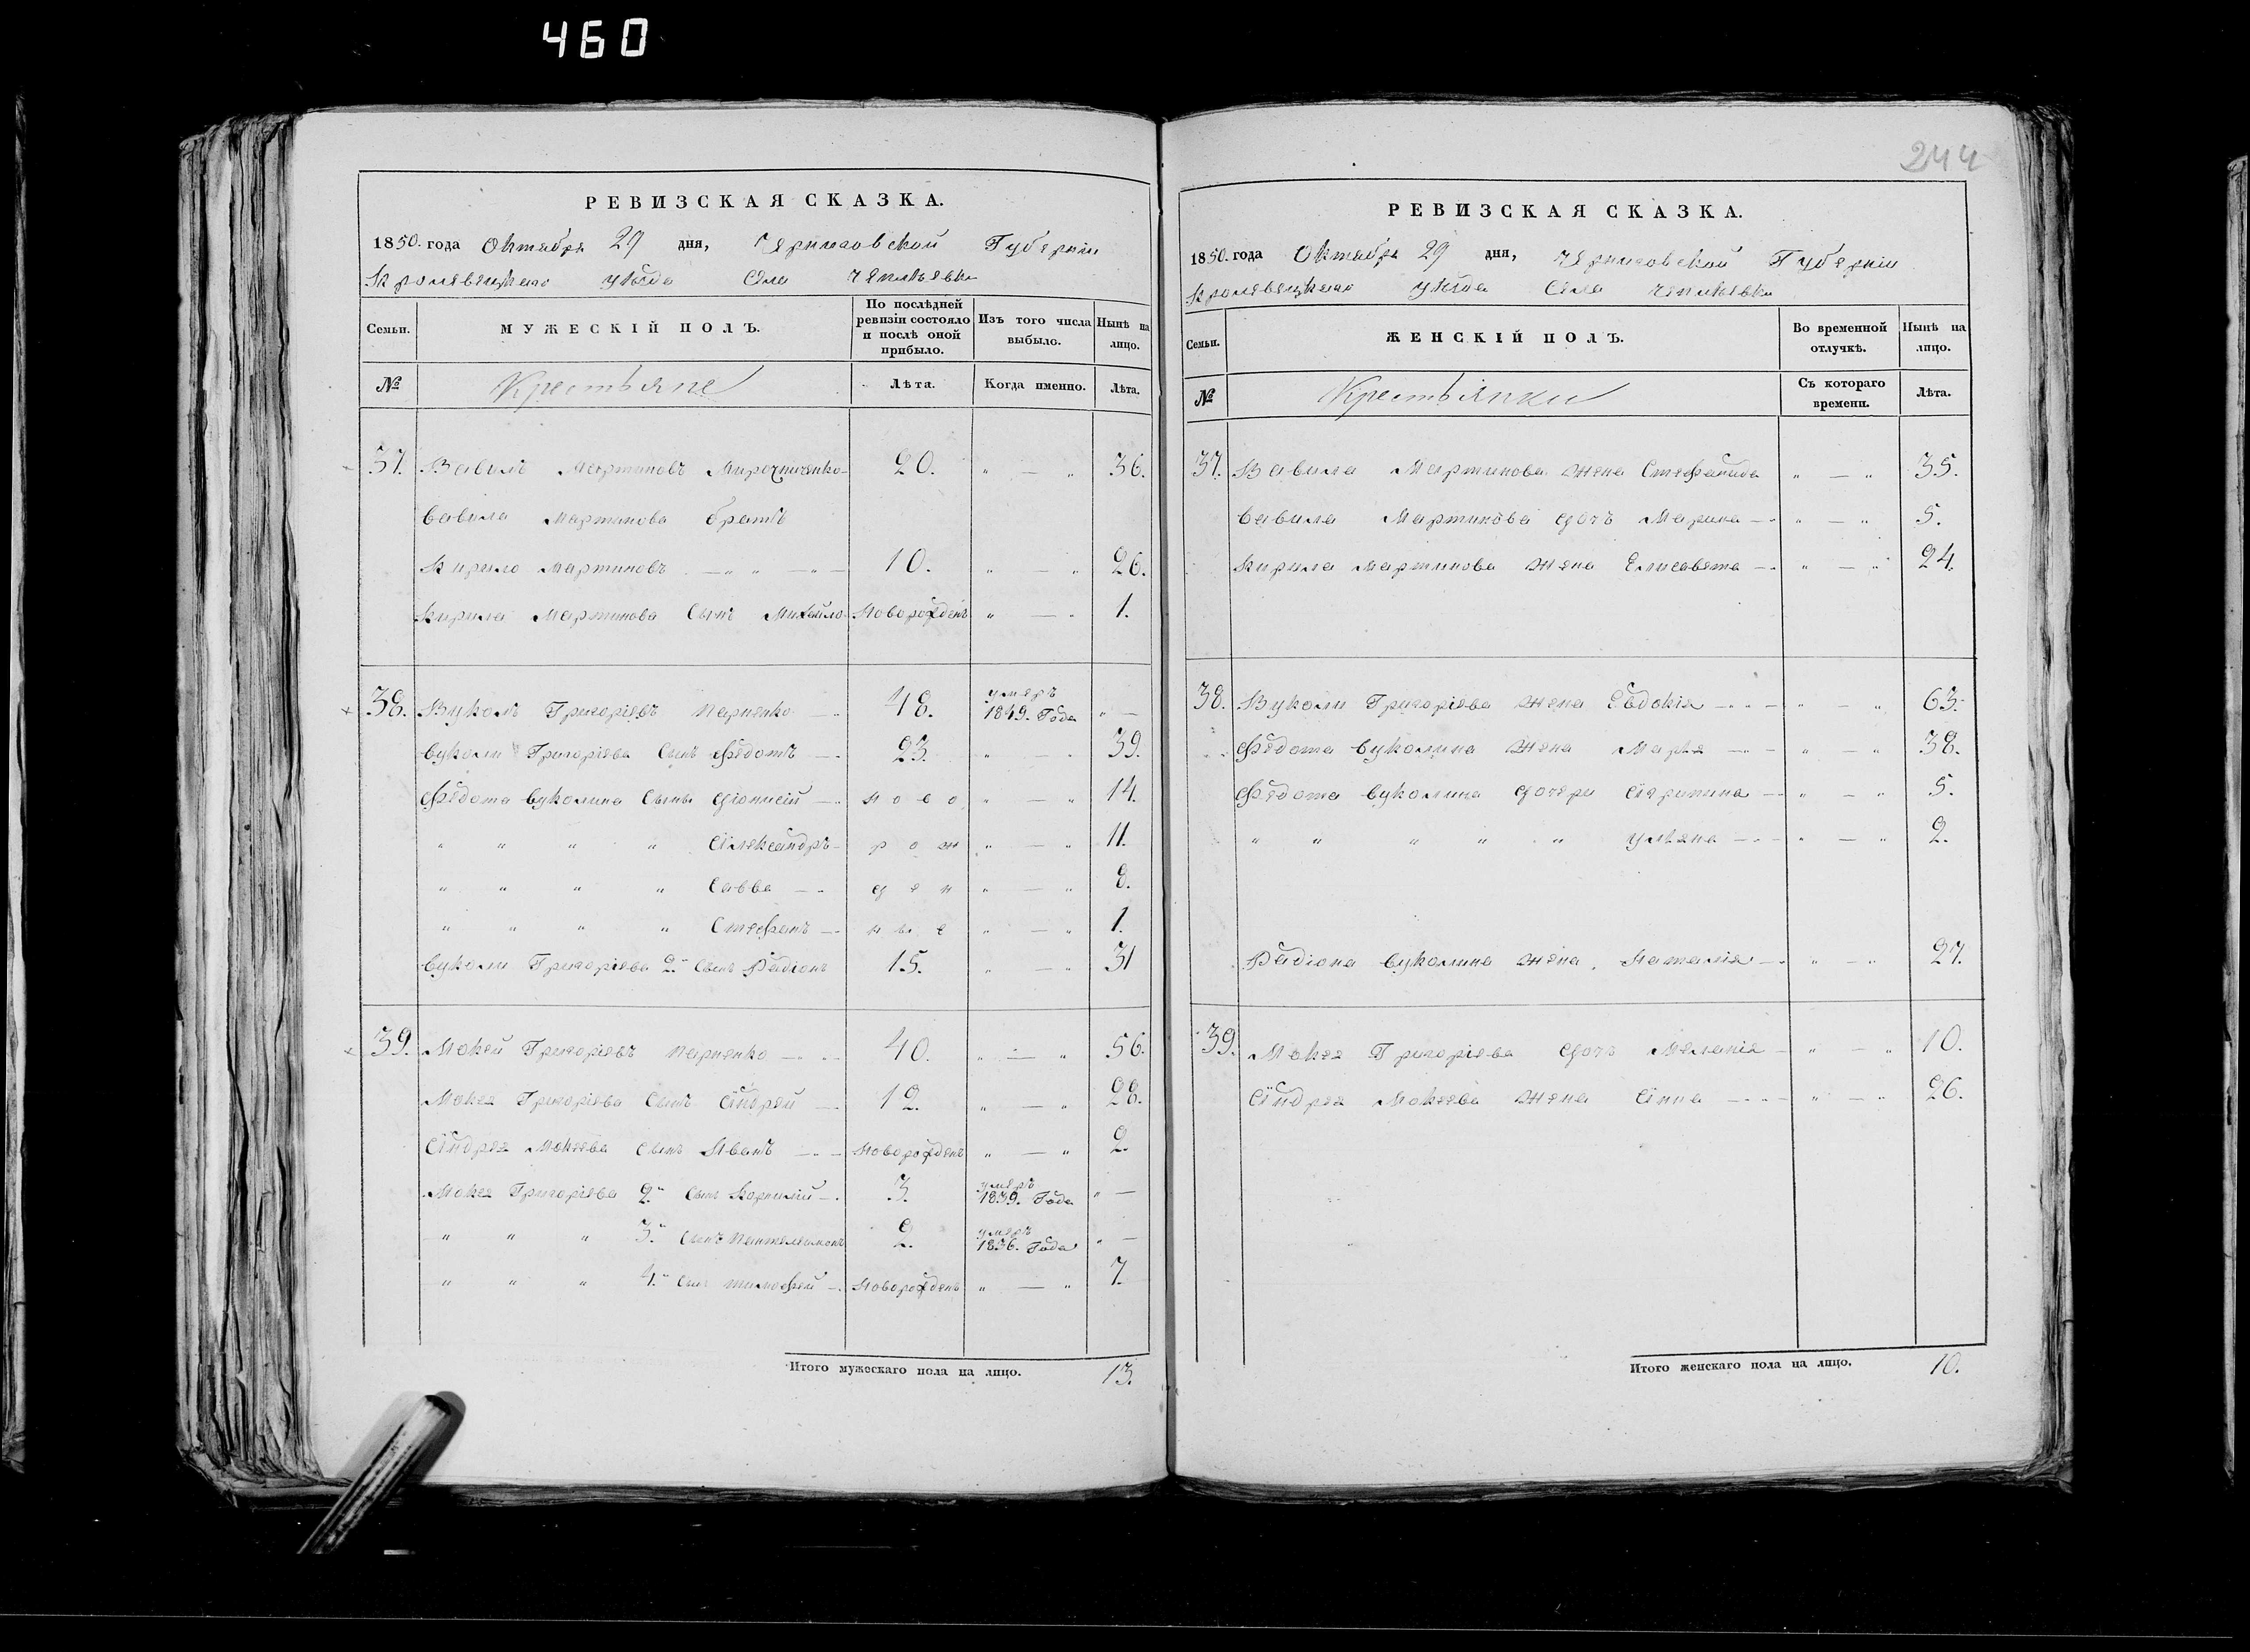 460
244
РЕВИЗСКАЯ СКАЗКА.
1850. года Октября 29 дня, Черниговской Губерніи
Кролевецкаго уѣзда Села
Семьи. МУЖЕСКІЙ ПОЛЪ. По послѣдней ревизіи состояло и послѣ оной прибыло. Изъ того числа выбыло. Нынѣ на лицо.
№ Крестьяне Лѣта. Когда именно. Лѣта.
37. Вавилъ Мартиновъ Мирочниченко 20. „ — „ 36.
Вавила Мартинова братъ
Кирило Мартиновъ — „ „ — „ — 10. „ — „ 26.
Кирила Мартинова Сынъ Михайло Новорожденъ „ — „ 1.
38. Вуколъ Григоріевъ Парненко — 48. умеръ 1849. Года „ —
Вуколи Григоріева Сынъ Федотъ — 23. „ — „ 39.
Федота Вуколина Сыны Діонисій — Н о в о „ — „ 14.
„ „ „ „ Александръ — р о ж „ — „ 11.
„ „ „ „ Савва — д е н „ — „ 8.
„ „ „ „ Стефанъ — н ы е „ — „ 1.
Вуколи Григоріева 2.й Сынъ Радіонъ 15. „ — „ 31
39. Мокей Григоріевъ Парненко — 40. „ — „ 56.
Мокея Григоріева Сынъ Андрей — 12. „ — „ 28.
Андрея Мокеева Сынъ Иванъ — Новорожденъ „ — „ 2.
Мокея Григоріева 2.й Сынъ Корнилій — 3. умеръ 1839. Года „ —
„ „ „ 3.й Сынъ Пантелеимонъ 2. умеръ 1836. Года „ —
„ „ „ 4.й Сынъ Тимофей — Новорожденъ „ — „ 7.
Итого мужескаго пола на лицо. 13.
РЕВИЗСКАЯ СКАЗКА.
1850. года Октября 29 дня, Черниговской Губерніи
Кролевецкаго уѣзда Села
Семьи. ЖЕНСКІЙ ПОЛЪ. Во временной отлучкѣ. Нынѣ на лицо.
№ Крестьянки Съ котораго времени. Лѣта.
37. Вавила Мартинова жена Стефанида „ — „ 35.
Вавила Мартинова дочь Марина — „ — „ 5.
Кирила Мартинова жена Елисавета — „ — „ 24.
38. Вуколи Григоріева жена Евдокія — „ — „ 63.
Федота Вуколина жена Марія — „ — „ 38.
Федота Вуколина дочери Ирина — „ — „ 5.
„ „ „ „ „ Уліяна — „ — „ 2.
Радіона Вуколина жена Наталія — „ — „ 27.
39. Мокея Григоріева дочь Меланія — „ — „ 10.
Андрея Мокеева жена Анна — „ — „ 26.
Итого женскаго пола на лицо. 10.